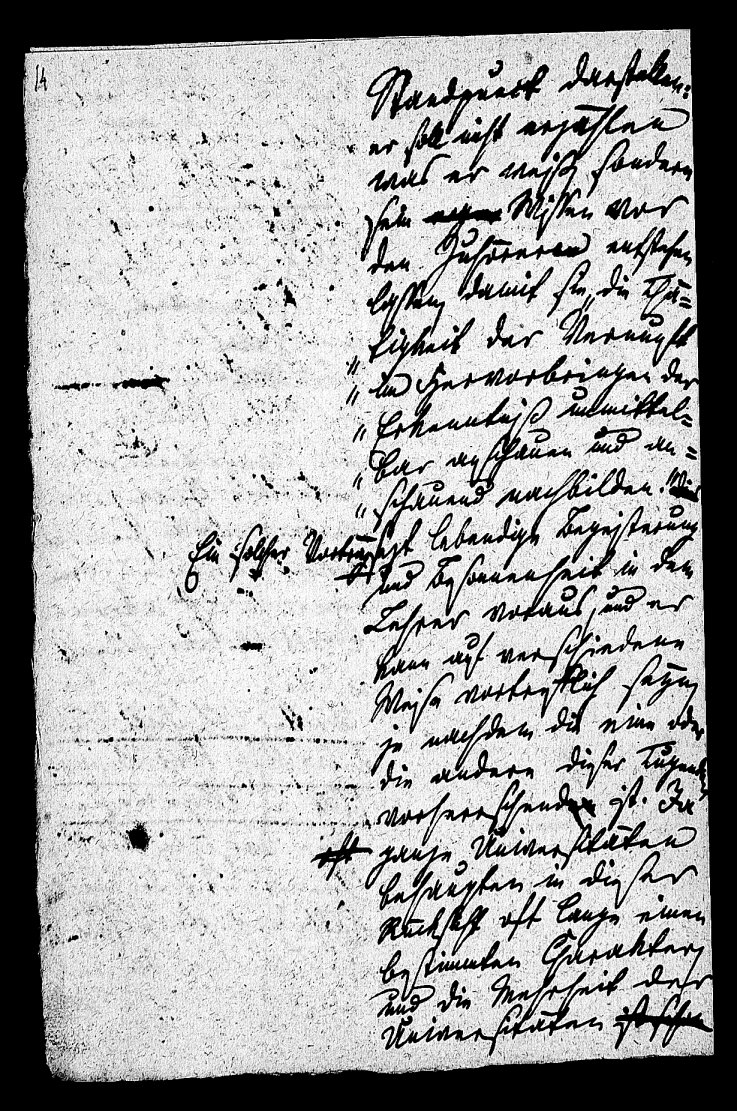 14
Standpunct darstellen:
er soll nicht erzählen
was er weiß, sondern
sein Wissen vor
den Zuhörern entstehen
lassen, damit sie „die Thä=
„tigkeit der Vernunft
„im Hervorbringen der
„Erkenntniß unmittel=
„bar anschauen und an=
„schauend nachbilden.“
Ein solcher Vortrag
setzt lebendige Begeisterung
und Besonnenheit in dem
Lehrer voraus, und er
kann auf verschiedene
Weise vortrefflich seyn,
je nachdem die eine oder
die andere dieser Tugenden
vorherrschend ist. Ja
oft ganze Universitäten
behaupten in dieser
Rücksicht oft lange einen
bestimmten Charakter,
und die Mehrheit der
Universitäten